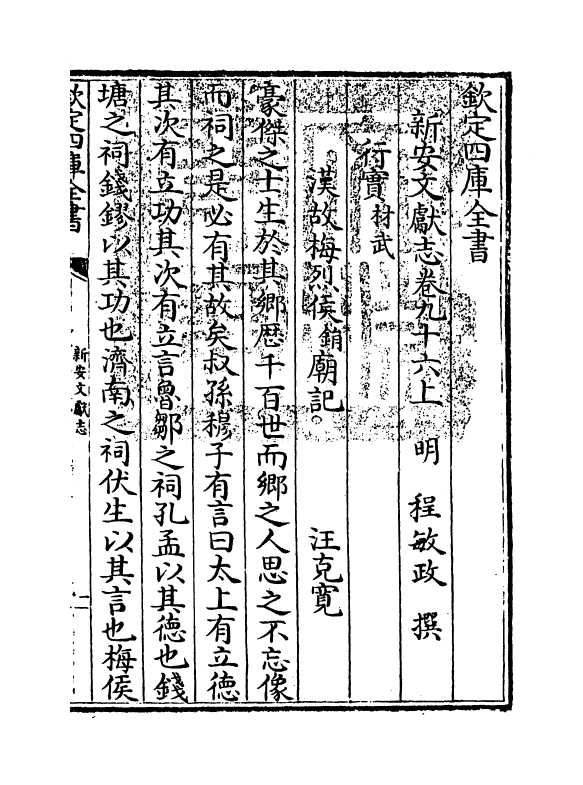 欽定四庫全書
新安文獻志卷九十六上　明　程敏政　撰
行實材武
漢故梅烈侯鋗廟記　汪克寬
豪傑之士生於其鄉歴千百世而鄉之人思之不忘像
而祠之是必有其故矣叔孫穆子有言曰太上有立德
其次有立功其次有立言魯鄒之祠孔孟以其德也錢
塘之祠錢鏐以其功也濟南之祠伏生以其言也梅侯
欽定四庫全書
新安文獻志